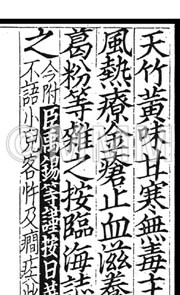 天竹黃味甘寒無毒主
風熱療金瘡止血滋養
葛粉等雜之按臨海誌
之
今附臣禹錫等謹按日華
不語小兒客忤及癇痰